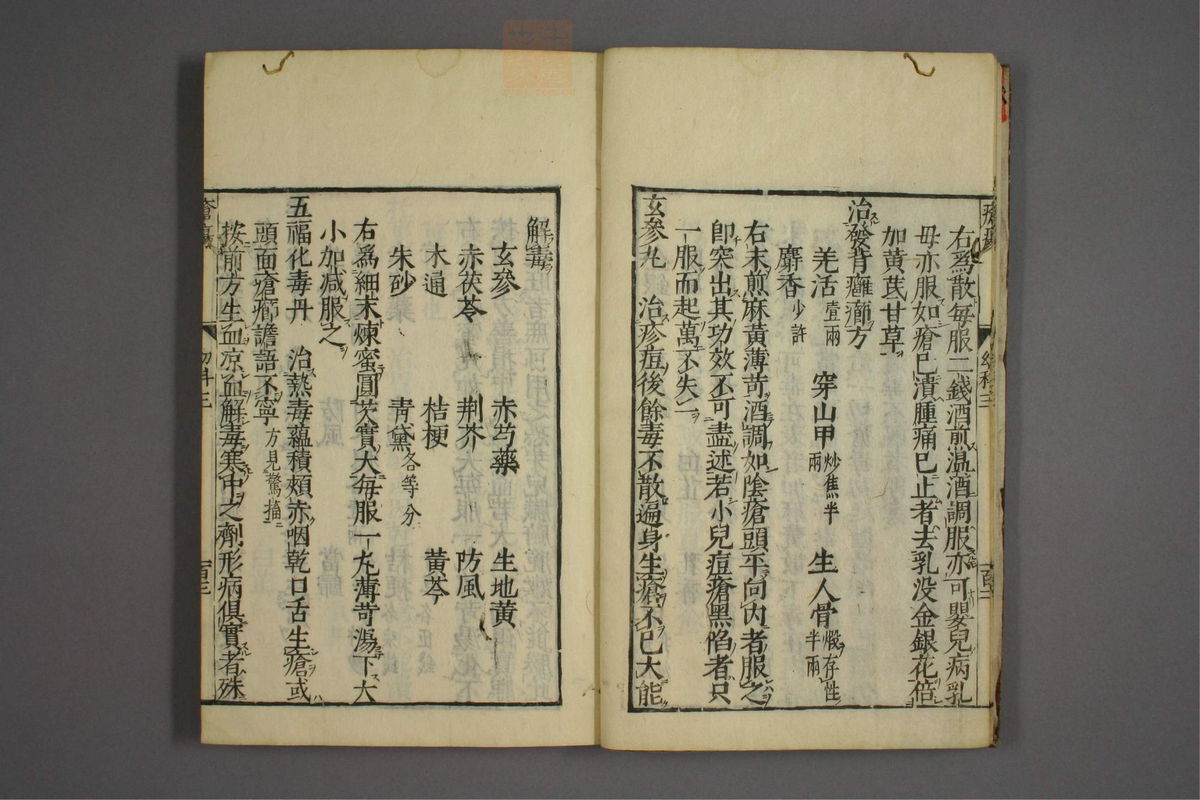 右爲散毎服二錢酒煎温酒調服亦可嬰兒病乳
母亦服如瘡已潰腫痛已止者去乳没金銀花倍
加黄芪甘草
治發背癰癤方
羌活壹兩 穿山甲炒焦半兩 生人骨煅存性半兩
麝香少許
右末煎麻黄薄苛酒調如陰瘡頭平向内者服之
即突出其功效不可盡述若小兒痘瘡黑陷者只
一服而起萬不失一
玄參丸 治疹痘後餘毒不散遍身生瘡不已大能
解毒
玄參 赤芍藥 生地黄
赤茯苓 荆芥 防風
木通 桔梗 黄芩
朱砂 青黛各等分
右爲細末煉蜜圓芡實大毎服一丸薄苛湯下大
小加减服之
五福化毒丹 治熱毒蘊積頰赤咽乾口舌生瘡或
頭面瘡癤譫語不寧方見驚搐
按前方生血凉血解毒寒中之劑形病俱實者殊
幼科三
百二
幼科三
百三